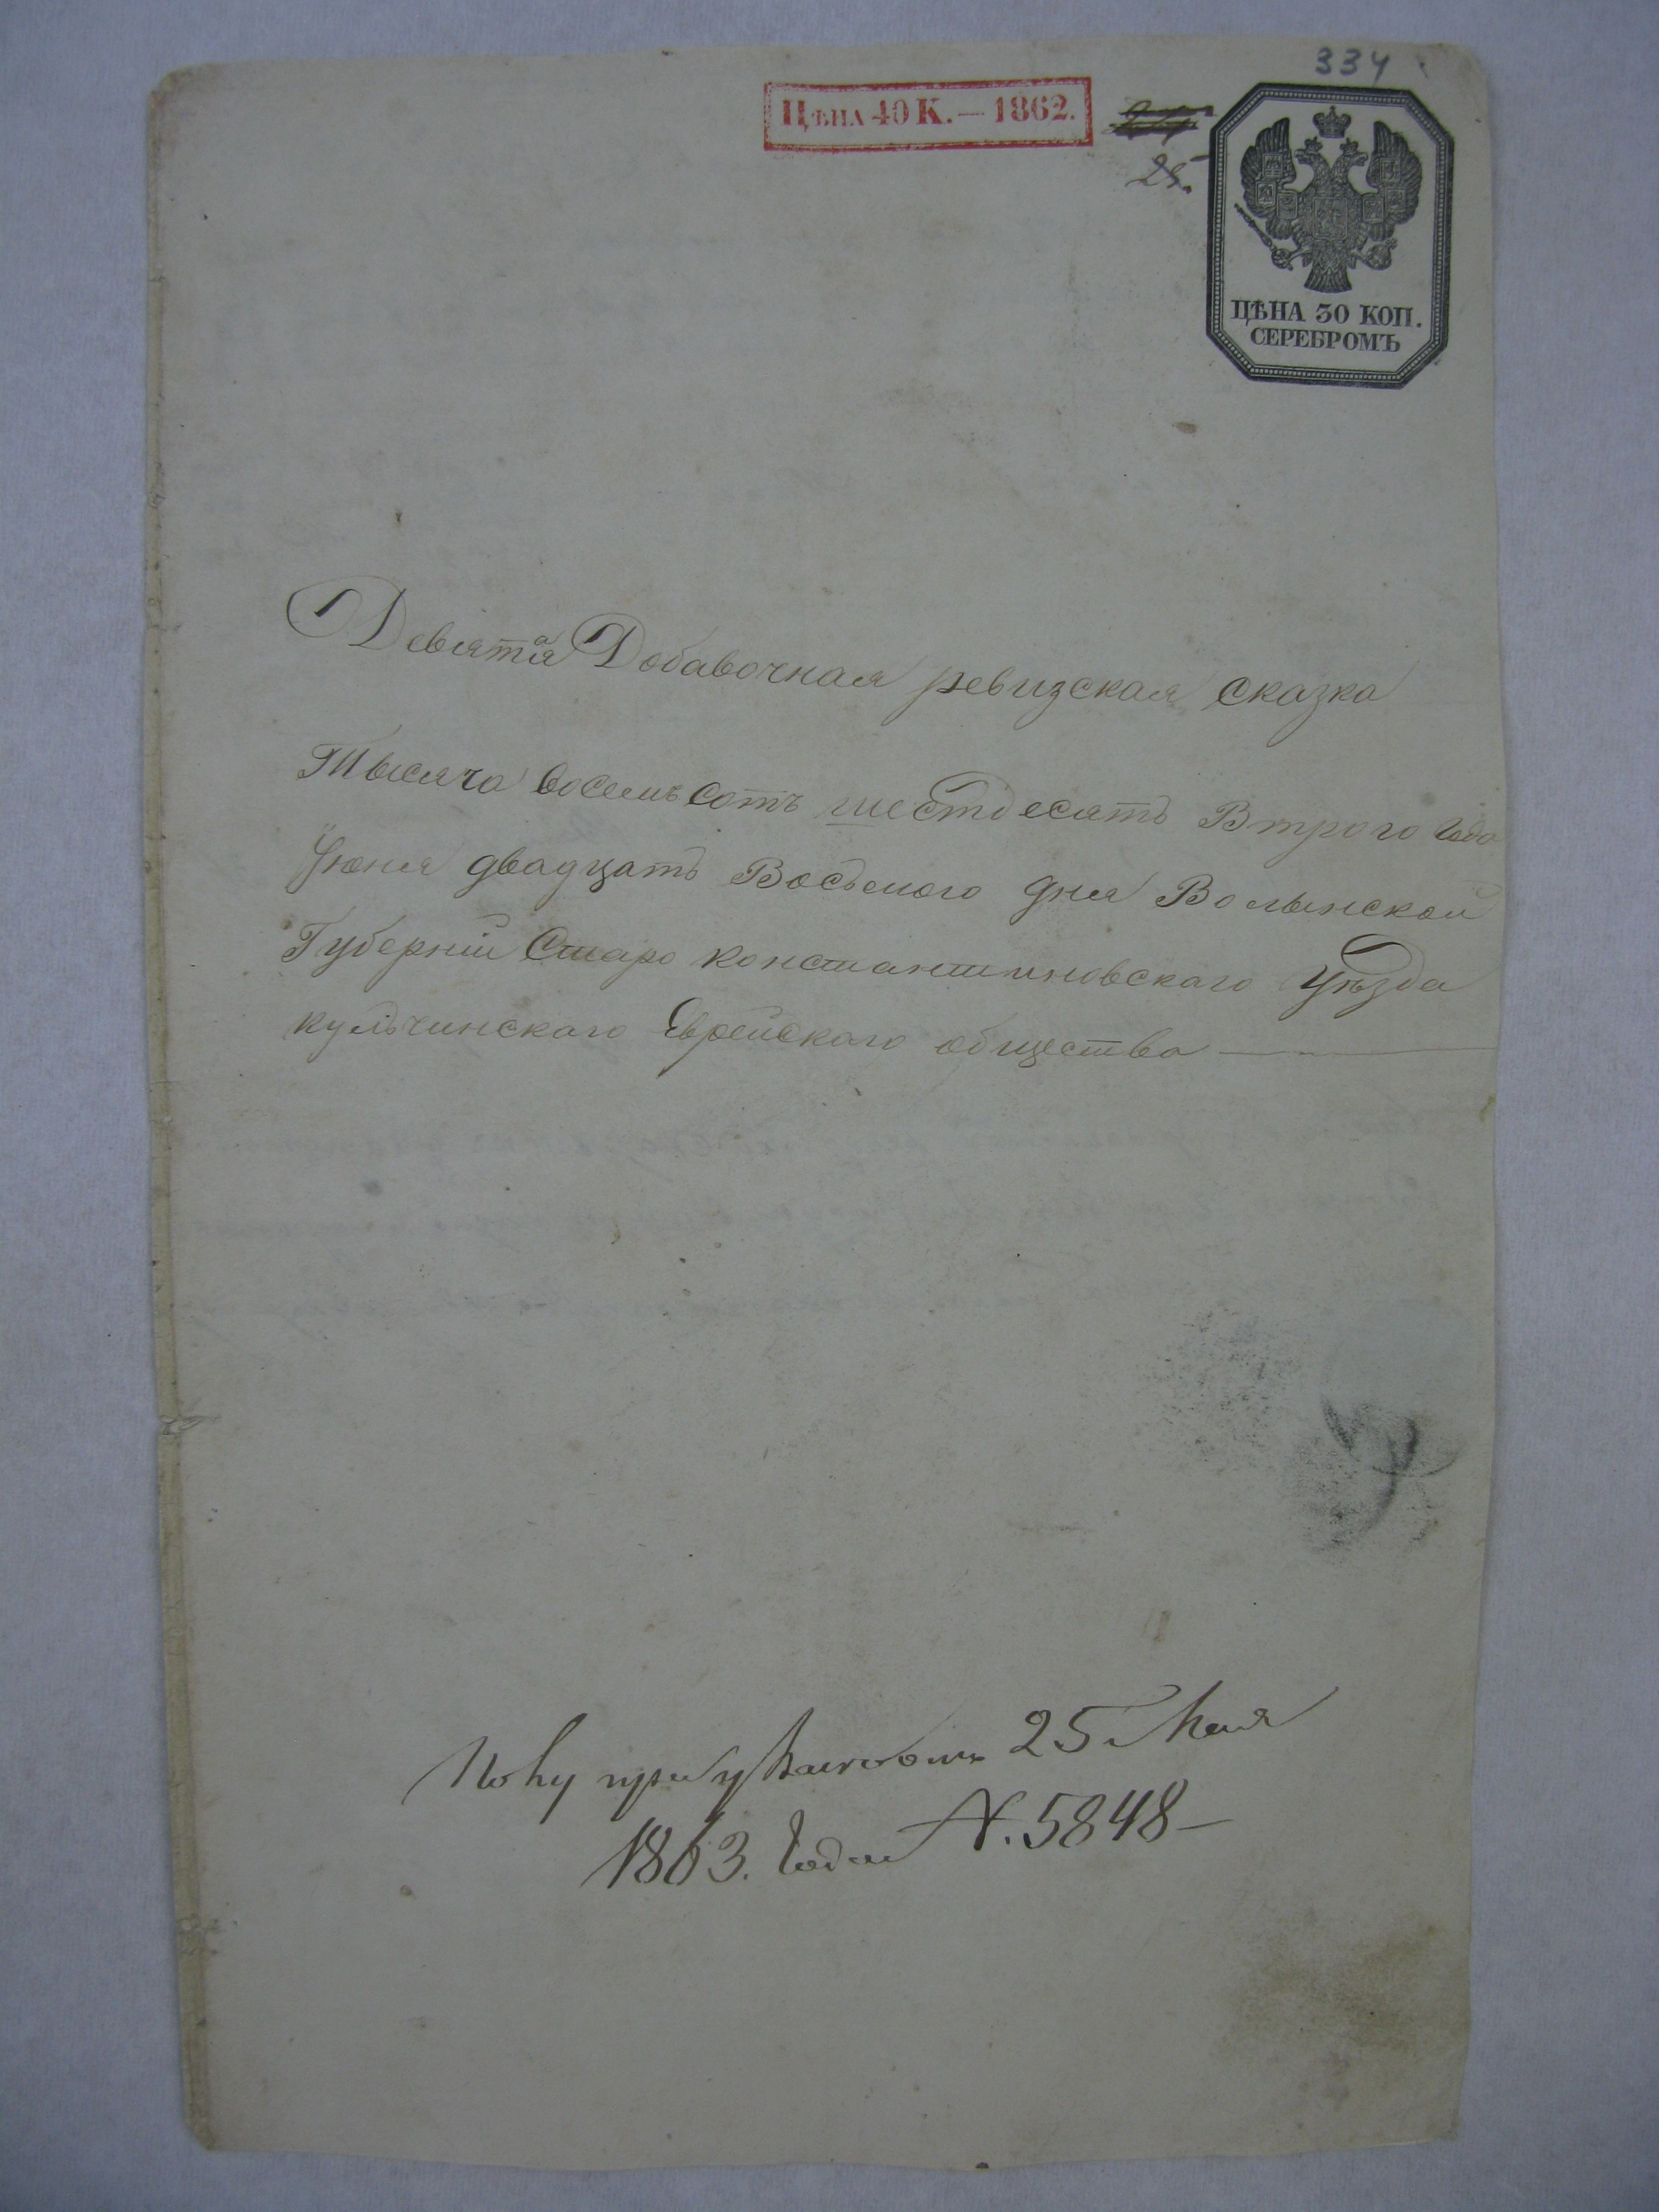 334
Цѣна 40 К. — 1862.
25.
ЦѢНА 30 КОП.
СЕРЕБРОМЪ
Девятая Добавочная ревизская сказка
Тысяча восемьсотъ шестдесятъ Втрого года
Іюня двадцать Восьмого дня Волынской
Губерніи Старо константиновскаго Уѣзда
кульчинскаго Еврейскаго общества
при 25 Мая
1863. Года N. 5848